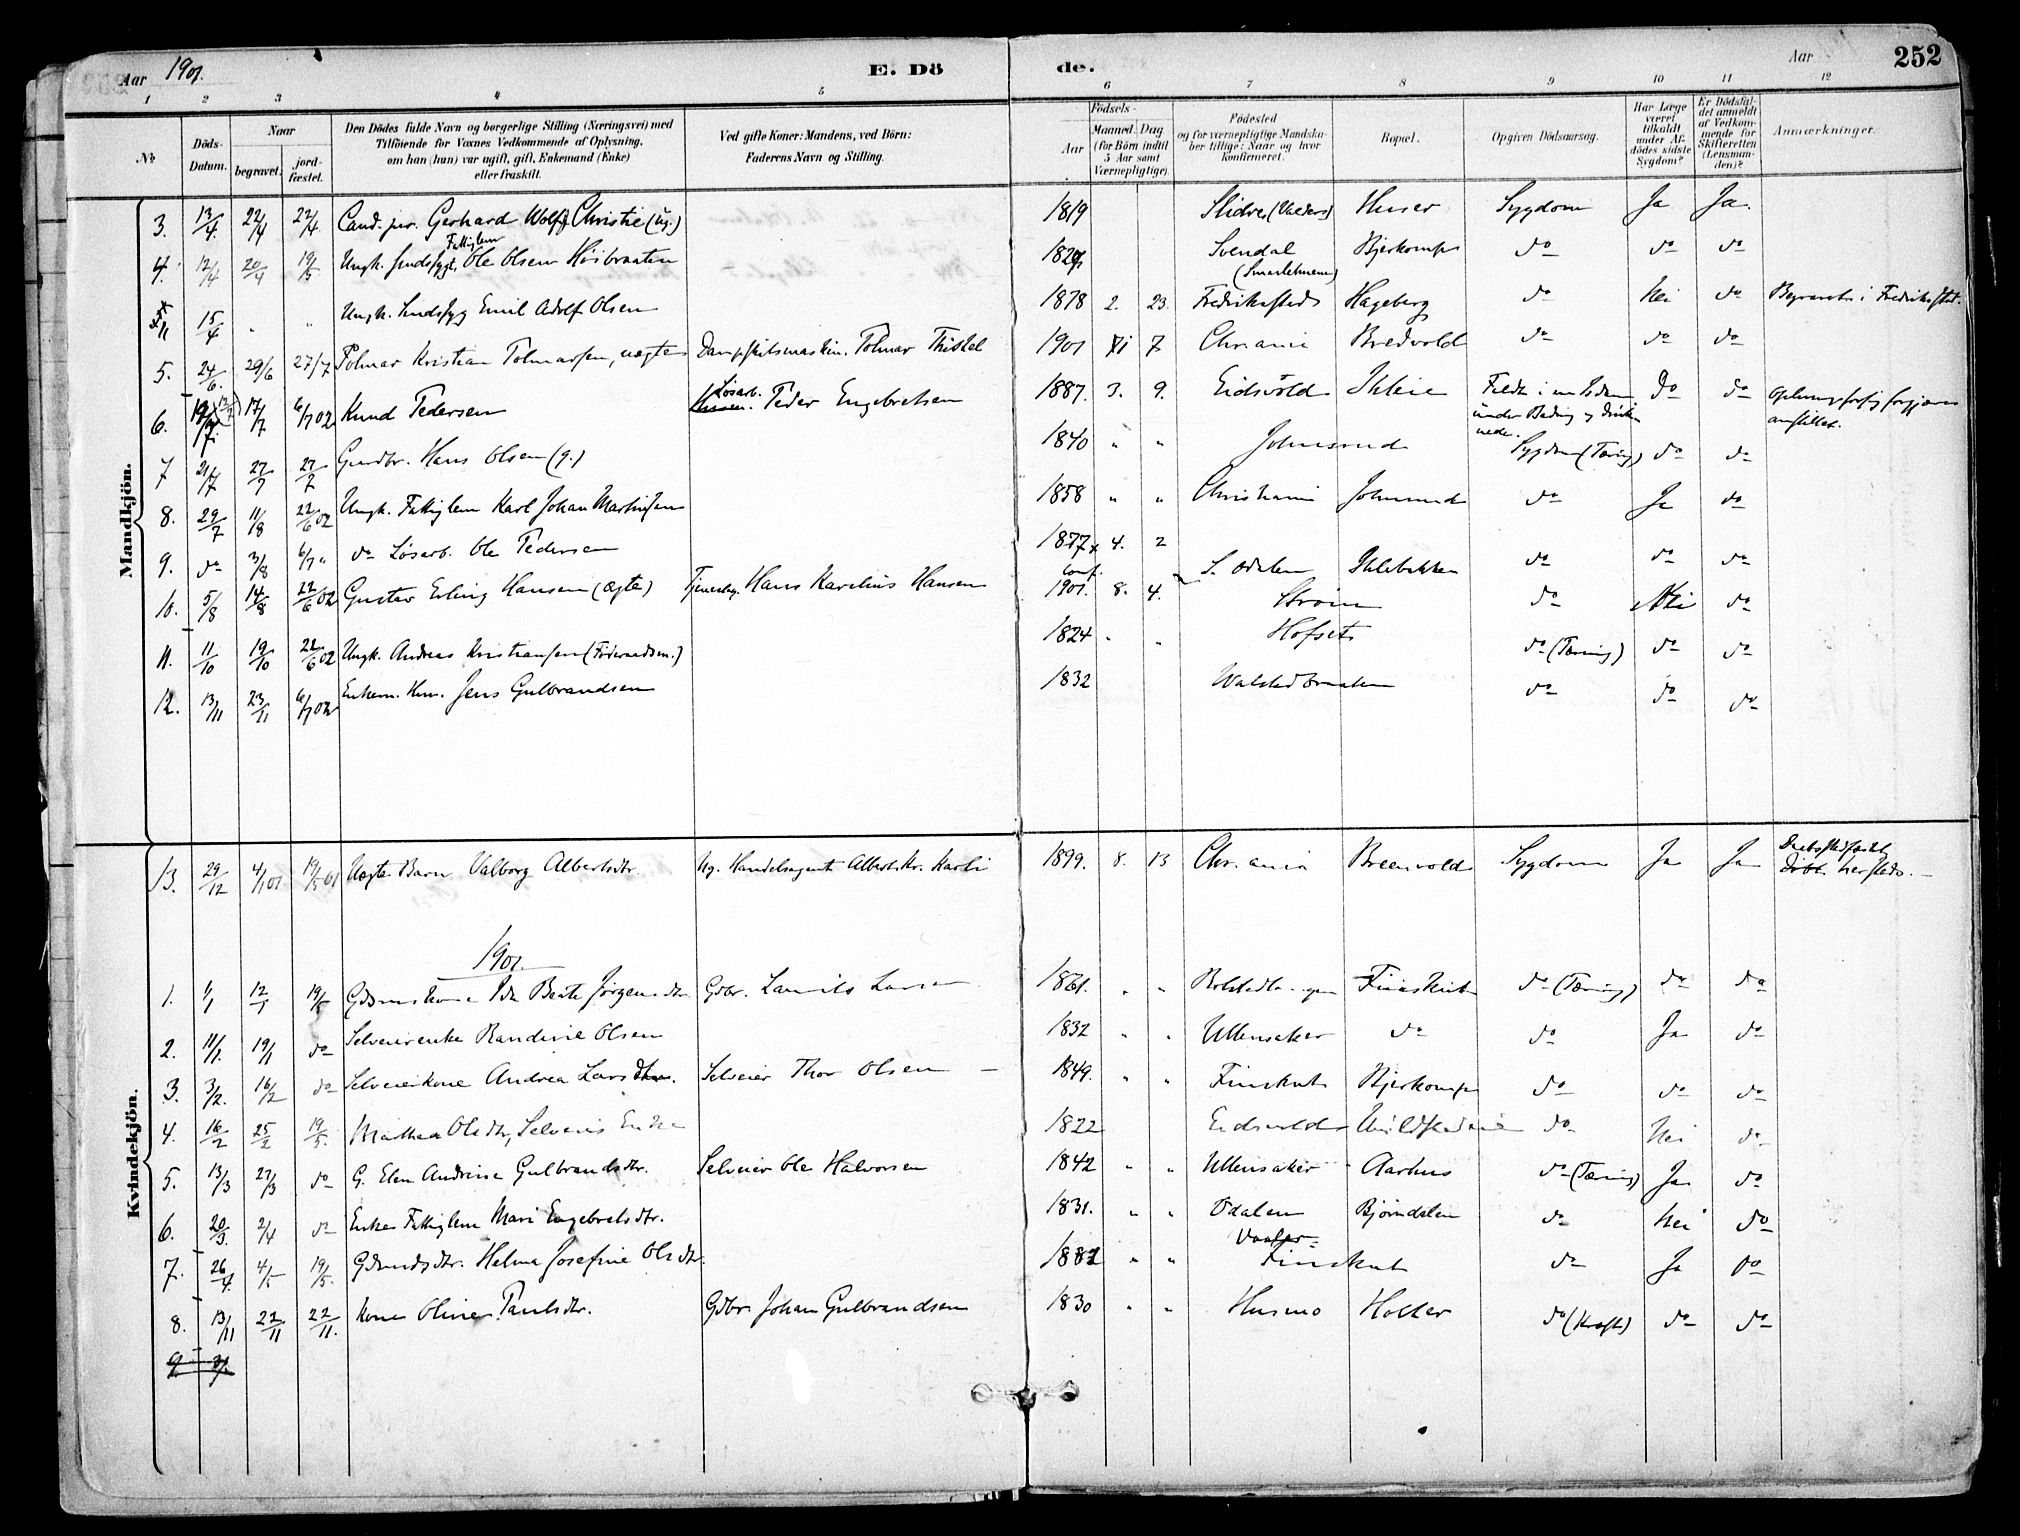 Aar 1901.
E. Dö
de.
Aar
252
1 2 3 4 5 6 7 8 9 10 11 12
No
Döds-Datum.
Naar
begravet.
jord-fæstet.
Den Dödes fulde Navn og borgerlige Stilling (Næringsvei) med
Tilföiende for Voxnes Vedkommende af Oplysning,
om han (hun) var ugift, gift, Enkemand (Enke)
eller fraskilt.
Ved gifte Koner: Mandens, ved Börn:
Faderens Navn og Stilling.
Födsels-
Aar
Maaned. Dag
(for Börn indtil
5 Aar samt
Værnepligtige).
Födested
og for værnepligtige Mandska-
ber tillige: Naar og hvor
konfirmeret.
Bopæl.
Opgiven Dödsaarsag.
Har Læge
været
tilkaldt
under Af-
dödes sidste
Sygdom?
Er Dödsfal-
det anmeldt
af Vedkom-
mende for
Skifteretten
(Lensman-
den)?
Anmærkninger.
Mandkjön.
3. 13/4. 22/4 22/4 Cand. jur. Gerhard Wolff Christie (ug.) 1819 Slidre (Valders) Huser Sygdom Ja Ja.
4. 12/4 20/4 19/5 Ungk. sindssyg Fattiglem Ole Olsen Höibraaten 182 Svendal (Smaalenene) Bjerkomp do do do
15/4 " " Ungk. Sindssyg Emil Adolf Olsen 1878 2. 23. Fredrikssteds Hageberg do Nei do Begravet i Fredriksstad.
5. 24/6. 29/6 27/7 Tolmar Kristian Tolmarsen, uægte Dampskibsmaskin. Tolmar Thiskel 1901 7 Chr.ania Bredvold do do do
6. 17/7 6/7 02 Knud Pedersen Lösarb. Peder Engebretsen 1887. 3. 9. Eidsvold do do
under Bading
anstillet.
7 21/7 27/7 27/7 Gaardbr. Hans Olsen (g.) 1840 " " Johnsrud Sygdom (Tæring) do do
8. 29/7 11/8 22/6 02 Ungk. Fattiglem Karl Johan Martinsen 1858 " " Christiania Johnsrud do Ja do
9. do 3/8 6/7 " do Lösarb. Ole Pedersen 1877 4. 2 S. Odalen do do do
10. 5/8 14/8 22/6 02 Gustav Erling Hansen (ægte) Hans Karelius Hansen 1901. 8. 4. Ström do Nei do
11. 11/10 19/10 22/6 02 Ungk. Andreas Kristiansen (Föderaadsm.) 1824 " " Hofset do (Tæring) do do
12. 13/11 23/11 6/7 02 Enkem. Hm. Jens Gulbrandsen 1832 Walstadbraaten do do do
Kvindekjön.
13. 29/12 4/1 01 19/5 01 Uægte Barn Valborg Albertsdtr Ug. Handelsagent Albert Kr. Karli 1899. 8. 13 Chr.ania Breenvold Sygdom Ja Ja
Döbt hersteds. —
1901.
1. 1/1 12/1 19/5 Ida Beate Jörgensdtr Gdbr. Laurits Larsen 1861. " " Finskut do (Tæring) do do
2. 11/1. 19/1 do Selveierenke Randine Olsen 1832 " " Ullensaker do do Ja do
3. 3/2. 16/2 do Selveierkone Andrea Larsdtr. Selveier Thor Olsen — 1849. " " Finskut Bjerkomp do do do
4. 16/2 25/2 19/5. Mathea Olsdtr, Selveiers Enke 1822 Eidsvold do Nei do
5. 13/3 27/3 do G. Elen Andrine Gulbrandsdtr. Selveier Ole Halvorsen 1842 " " Ullensaker Aarhus do (Tæring) Ja do
6. 20/3. 2/4 do Enke Fattiglem Mari Engebretsdtr. 1831. " " Odalen Björndalen do Nei do
7. 26/4. 4/5 19/5. Gdmdsdtr. Helma Josefine Olsdtr. 1882 " " Finskut do Ja do
8. 13/11 22/11 22/11. Kone Oline Paulsdtr. Gdbr Johan Gulbrandsen 1830 " " Husmo Holter do (Kræft) do do
9